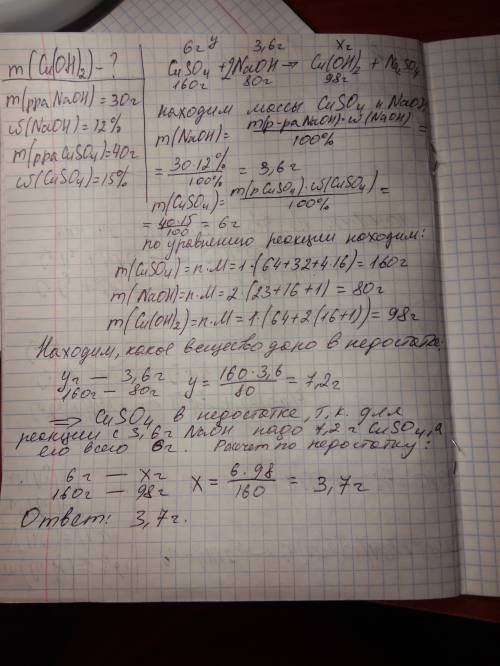 m(Cu(OH)₂) - ?
m(рра NaOH) = 30г
ω(NaOH) = 12%
m(рра CuSO₄) = 40г
ω(CuSO₄) = 15%
6г у 3,6г xг
CuSO₄ + 2NaOH → Cu(OH)₂ + Na₂SO₄
160г 80г 98г
находим массы CuSO₄ и NaOH
m(NaOH) = m(р-ра NaOH)·ω(NaOH) / 100% =
= 30·12% / 100% = 3,6г
m(CuSO₄) = m(р CuSO₄)·ω(CuSO₄) / 100% =
= 40·15 / 100 = 6г
по уравнению реакции находим:
m(CuSO₄) = n·M = 1·(64+32+4·16) = 160г
m(NaOH) = n·M = 2·(23+16+1) = 80г
m(Cu(OH)₂) = n·M = 1·(64+2(16+1)) = 98г
Находим, какое вещество дано в недостатке.
уг — 3,6г
160г — 80г
y = 160·3,6 / 80 = 7,2г
⇒ CuSO₄ в недостатке, т.к. для
реакции с 3,6г NaOH надо 7,2г CuSO₄, а
его всего 6г. Расчет по недостатку:
6г — xг
160г — 98г
X = 6·98 / 160 = 3,7г
Ответ: 3,7г.